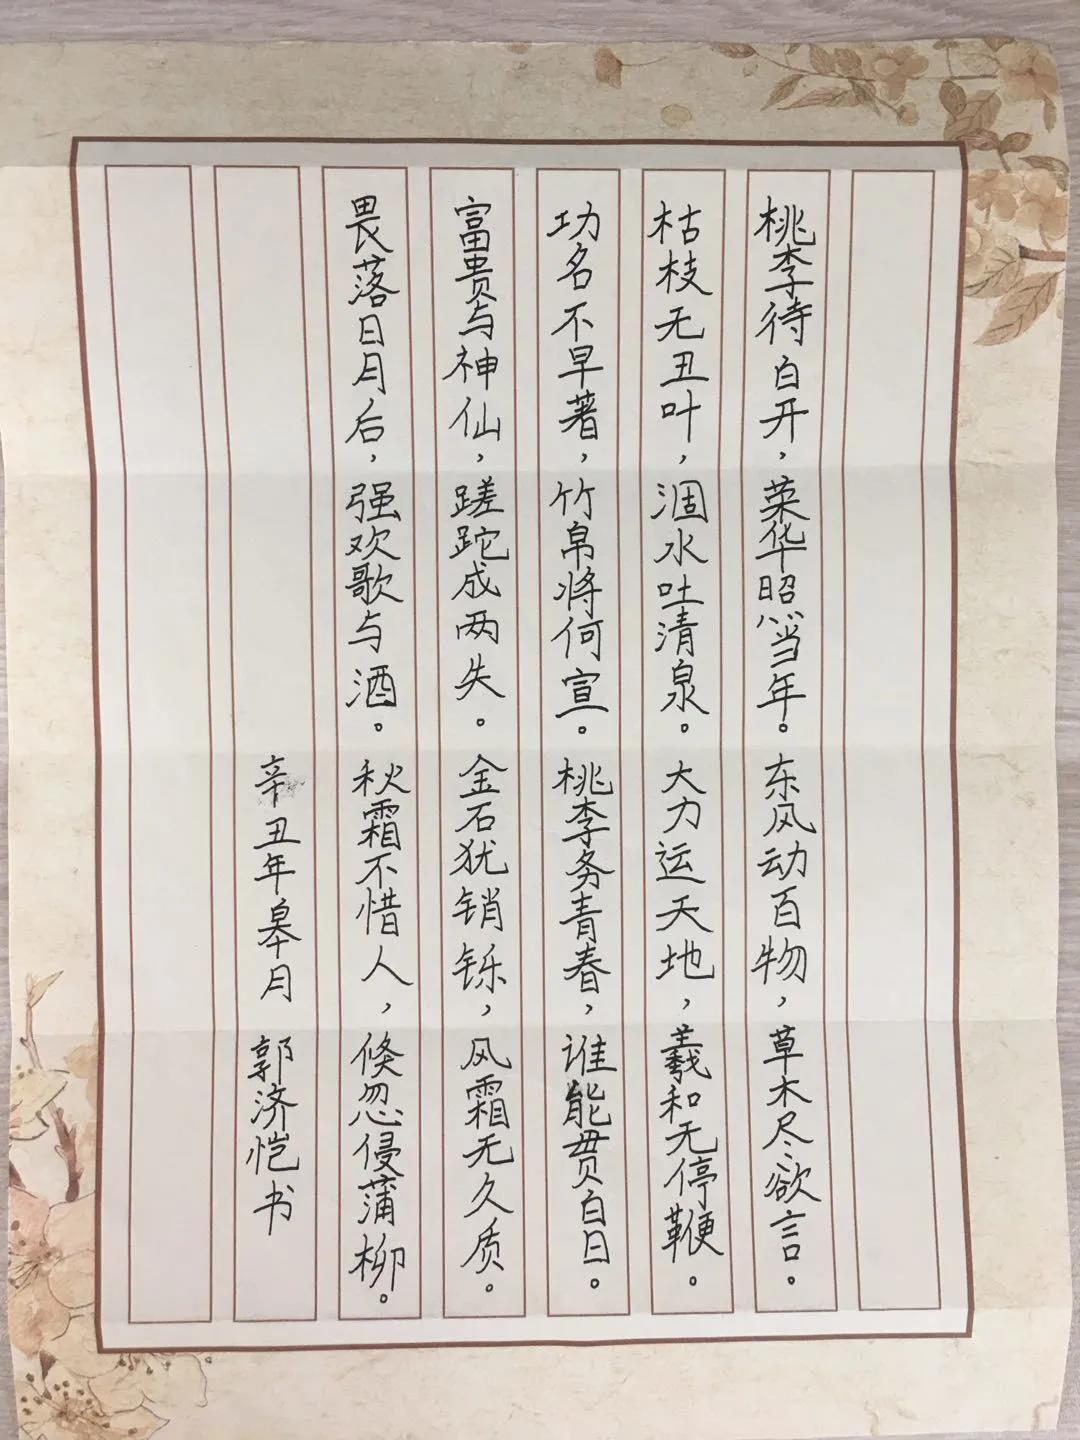 桃李待白开，荣华照当年。东风动百物，草木尽欲言。
枯枝无丑叶，涸水吐清泉。大力运天地，羲和无停鞭。
功名不早著，竹帛将何宣。桃李务青春，谁能贯白日。
富贵与神仙，蹉跎成两失。金石犹销铄，风霜无久质。
畏落日月后，强欢歌与酒。秋霜不惜人，倏忽侵蒲柳。
辛丑年皋月 郭济恺书